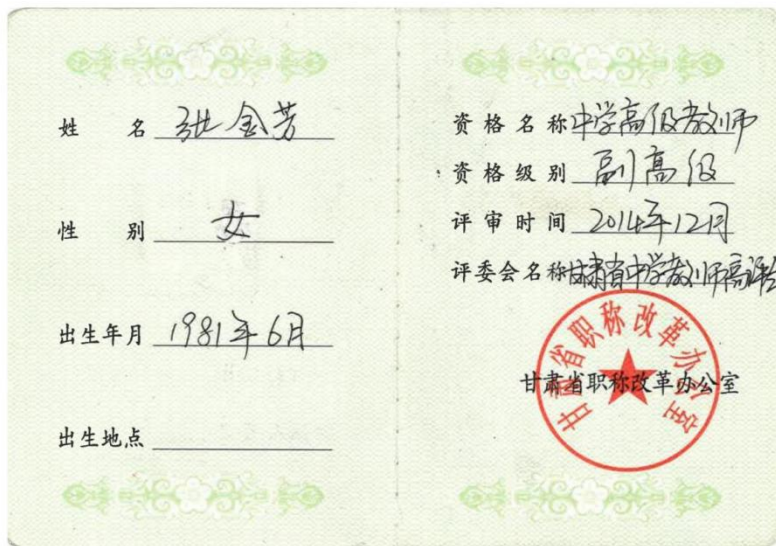 姓 名 张金芳
性 别 女
出生年月 1981年6月
出生地点
资格名称 中学高级教师
资格级别 副高级
评审时间 2014年12月
评委会名称 甘肃省中学教师高评会
甘肃省职称改革办公室
甘肃省职称改革办公室